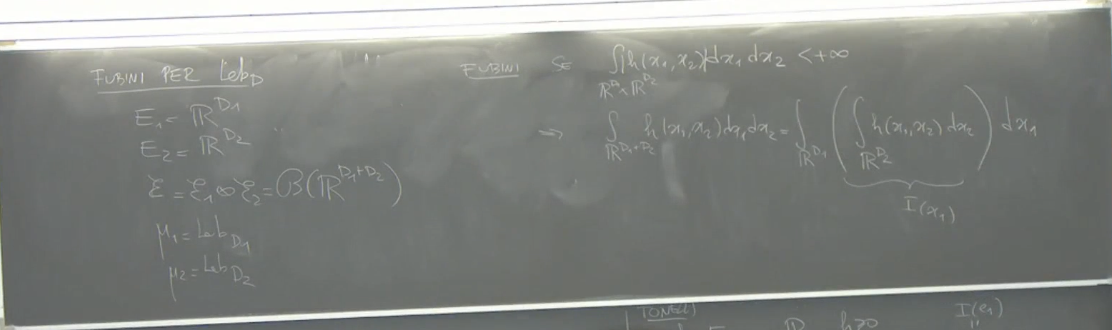 FUBINI PER Leb_D
E₁ = ℝ^{D₁}
E₂ = ℝ^{D₂}
ℰ = ℰ₁ ⊗ ℰ₂ = ℬ(ℝ^{D₁+D₂})
μ₁ = Leb_{D₁}
μ₂ = Leb_{D₂}
FUBINI SE ∬_{ℝ^{D₁}×ℝ^{D₂}} |h(x₁,x₂)| dx₁ dx₂ < +∞
⇒ ∫_{ℝ^{D₁+D₂}} h(x₁,x₂) dx₁ dx₂ = ∫_{ℝ^{D₁}} ( ∫_{ℝ^{D₂}} h(x₁,x₂) dx₂ ) dx₁
I(x₁)
TONELLI
h≥0
I(e₁)